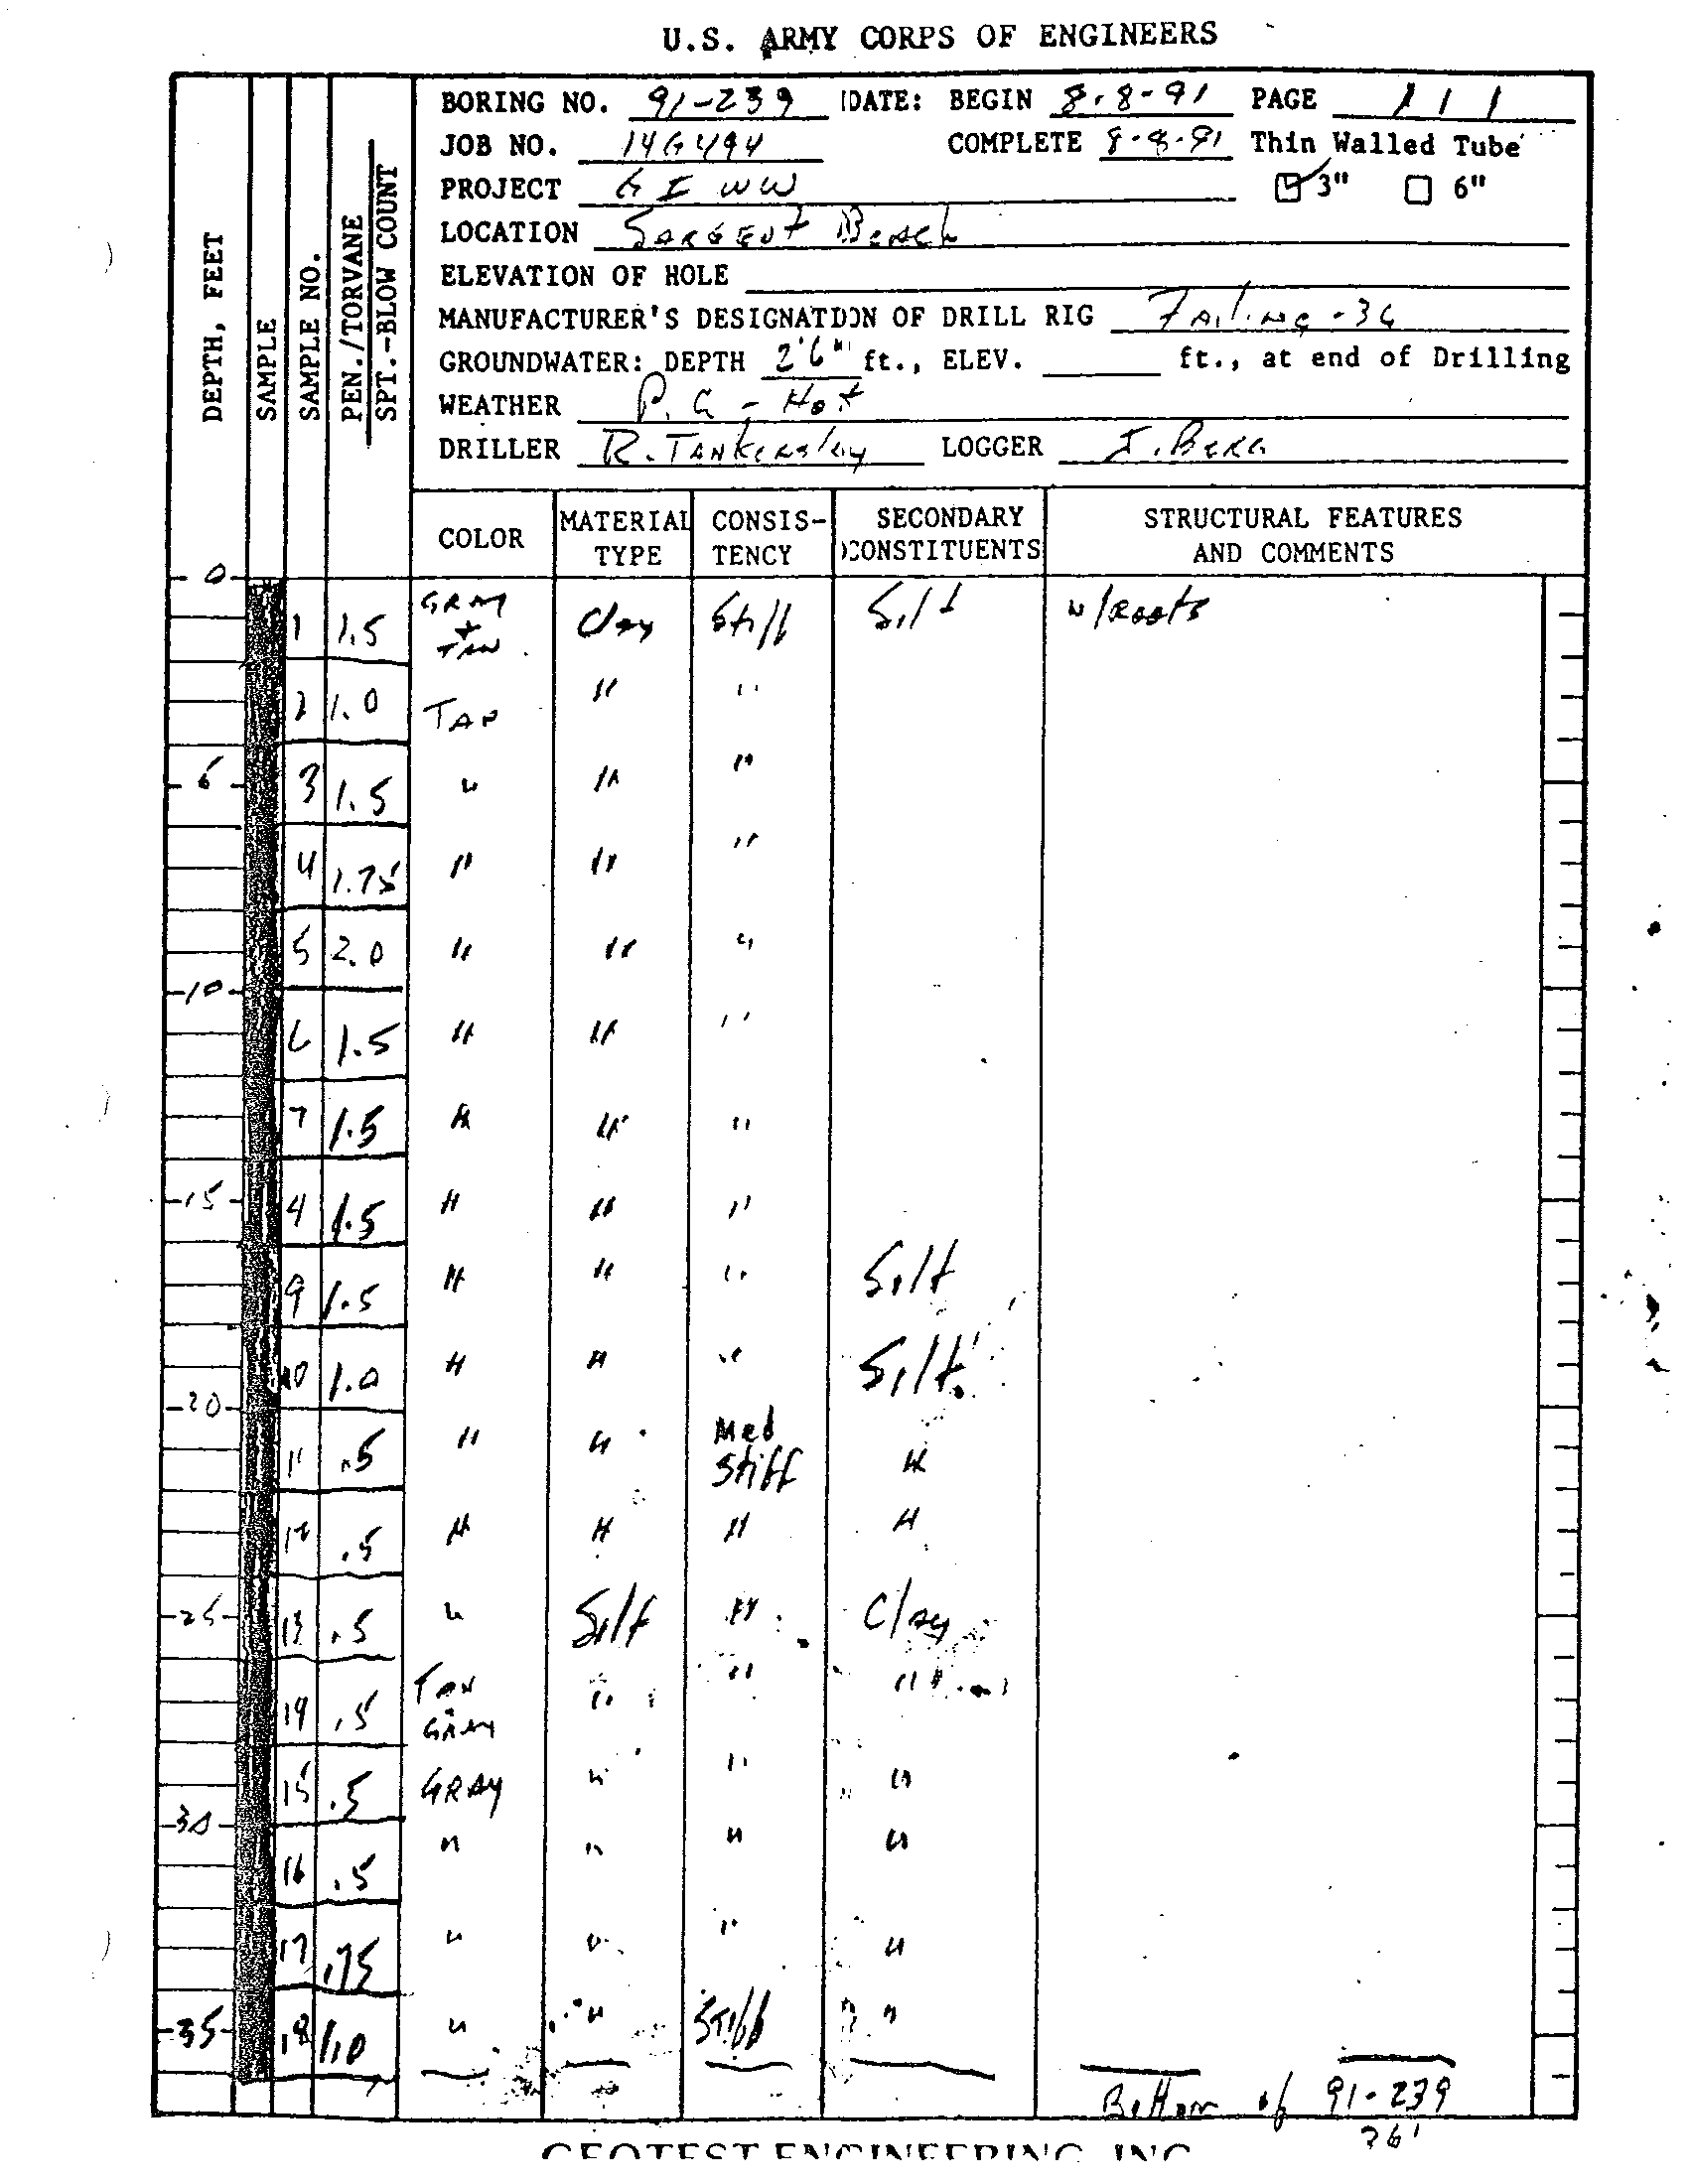 U.S. ARMY CORPS OF ENGINEERS
BORING NO. 91-239 DATE: BEGIN 8-8-91 PAGE 1 / 1
JOB NO. 14G494 COMPLETE 8-8-91 Thin Walled Tube
PROJECT GIWW 3" 6"
LOCATION SARGENT BEACH
ELEVATION OF HOLE
MANUFACTURER'S DESIGNATION OF DRILL RIG FAILING-36
GROUNDWATER: DEPTH 2'6" ft., ELEV. ft., at end of Drilling
WEATHER P.C - Hot
DRILLER R. TANKERSLEY LOGGER J. BERG
DEPTH, FEET
SAMPLE
SAMPLE NO.
PEN./TORVANE
SPT.-BLOW COUNT
COLOR MATERIAL TYPE CONSIS-TENCY SECONDARY CONSTITUENTS STRUCTURAL FEATURES AND COMMENTS
0
1 1.5 GRAY + TAN Clay Stiff Silt w/Roots
2 1.0 TAN " "
5 3 1.5 " " "
4 1.75 " " "
5 2.0 " " "
10
6 1.5 " " "
7 1.5 " " "
15 1.5 " " "
9 1.5 " " " Silt
10 1.0 " " " Silt
20
11 .5 " " Med Stiff "
12 .5 " " " "
25 13 .5 " Silt " Clay
14 .5 TAN GRAY " " "
15 .5 GRAY " " "
30
16 .5 " " " "
17 .75 " " " "
35 18 1.0 " " Stiff "
Bottom of 91-239
36'
GEOTEST ENGINEERING, INC.